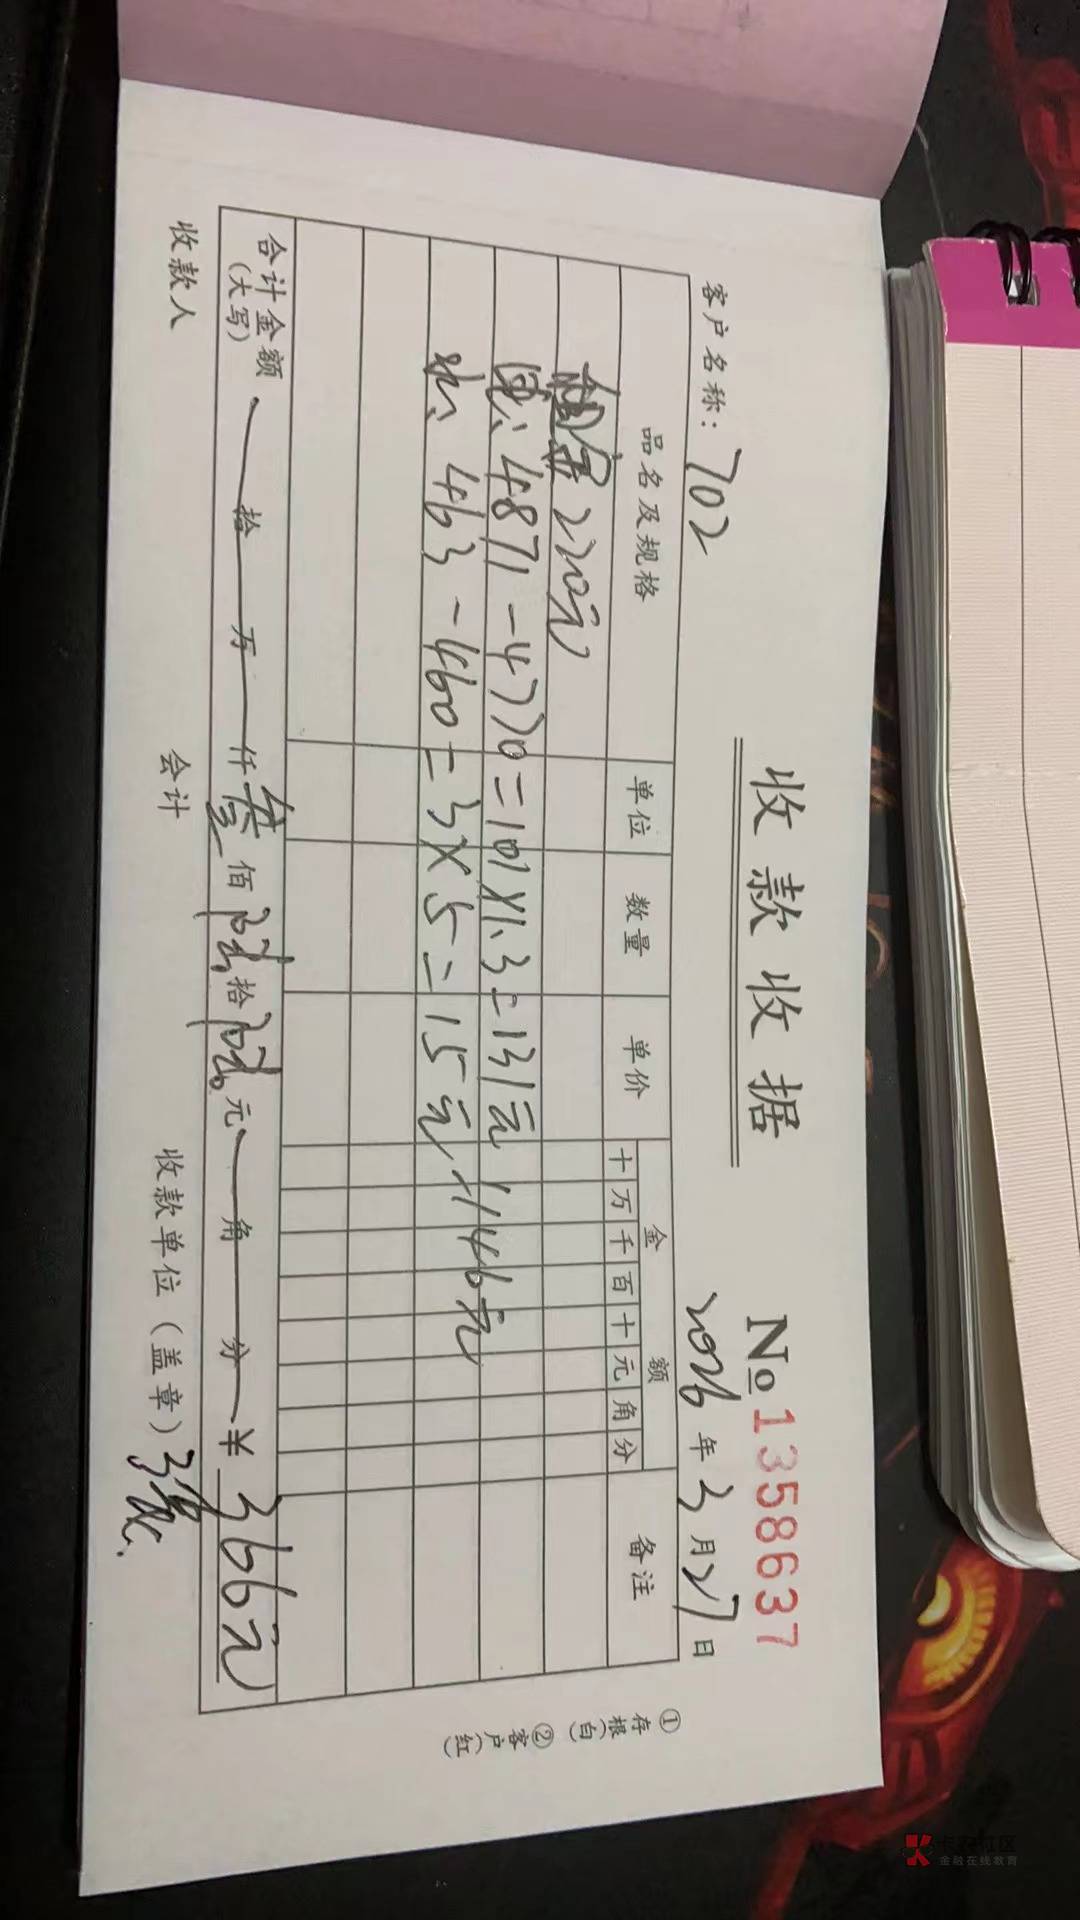 收款收据
No 1358637
客户名称：702
2026年3月27日
品名及规格 单位 数量 单价 金额 备注
十万千百十元角分
220元
电：4871-4770=101X1.3=131元
水：463-460=3X5=15元 146元
合计金额（大写） 拾 万 仟 叁佰陆拾陆元 角 分 ￥366元
收款人 会计 收款单位（盖章）
①存根（白） ②客户（红）
卡农社区
金融在线教育